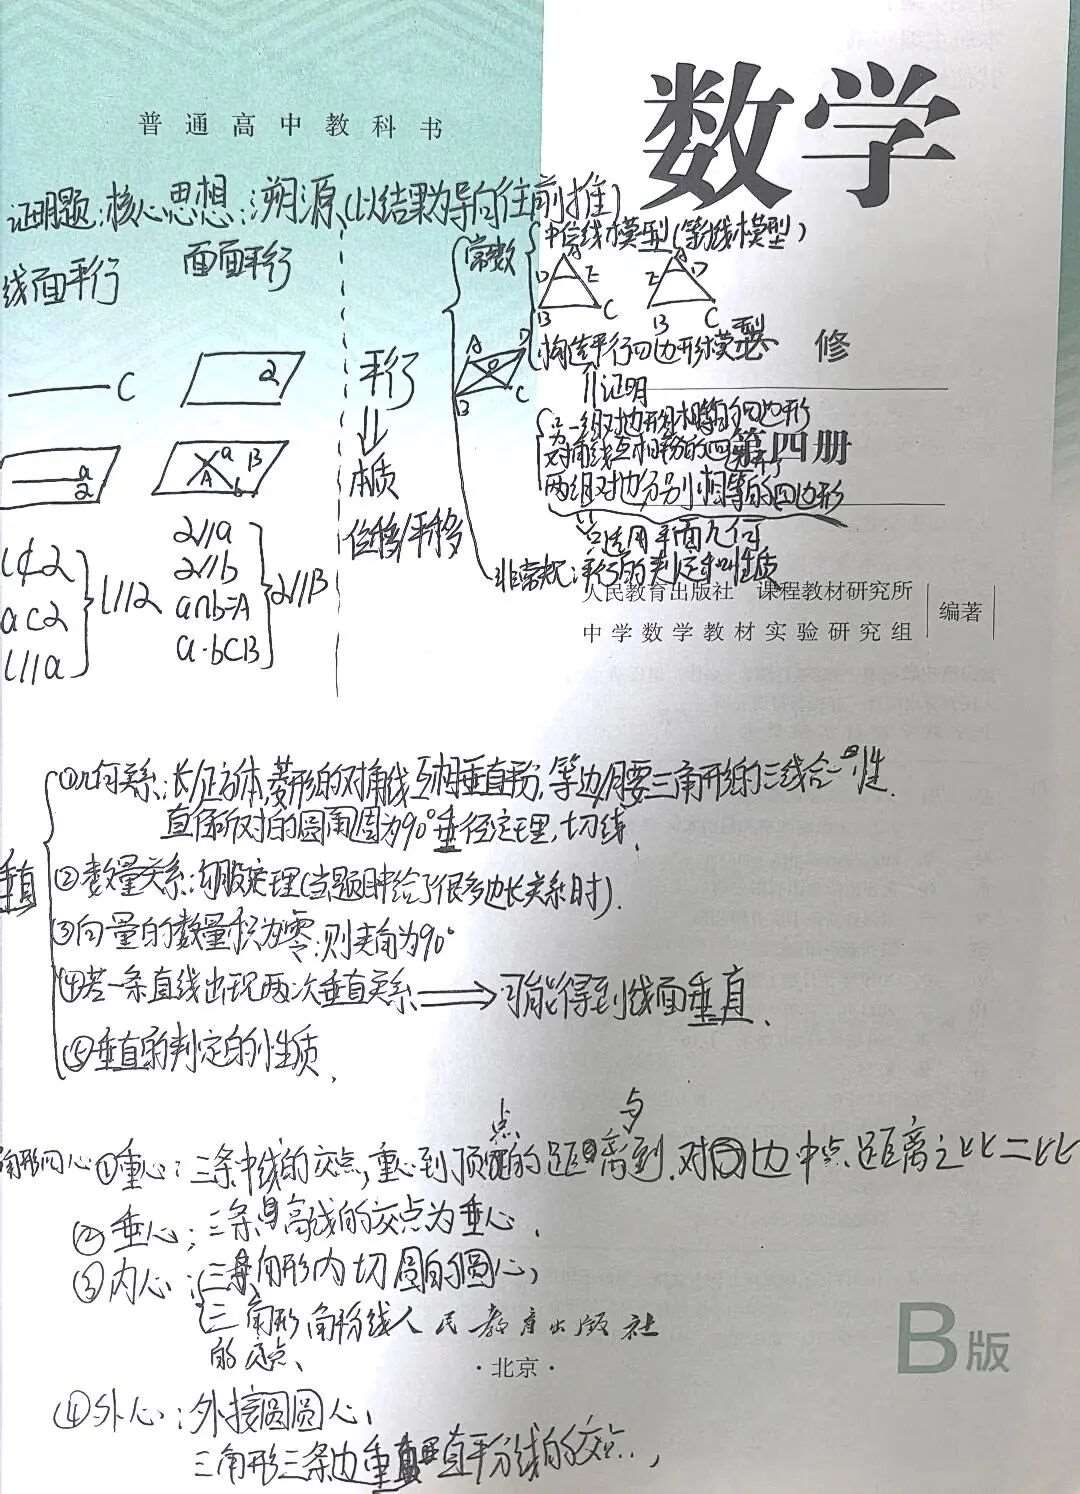 数学
普通高中教科书
证明题:核心思想:溯源(以结果为导向往前推)
线面平行
面面平行
常规
中位线模型(等线模型)
A
D E
B C
A
E D
B C
构造平行四边形模型
必修
A D
O
B C
C
2
a
2
a B
A b
平行
本质
位移/平移
证明
另一组对边平行相等的四边形
对角线互相平分的四边形
第四册
两组对边分别相等的四边形
只适用平面几何
非常规:平行的判定和性质
l⊄2
a⊂2
l//a
l//2
2//a
2//b
a∩b=A
a·b⊂B
2//B
人民教育出版社 课程教材研究所
中学数学教材实验研究组
编著
垂直
①几何关系:长/正方体,菱形的对角线互相垂直平分,等边/腰三角形的三线合一性.
直径所对的圆周角为90°垂径定理,切线.
②数量关系:勾股定理(当题目中给了很多边长关系时).
③向量的数量积为零:则夹角为90°
④若一条直线出现两次垂直关系⟹可能得到线面垂直.
⑤垂直的判定的性质.
角形四心①重心:三条中线的交点,重心到顶点的距离与到对边中点距离之比二比
②垂心:三条高线的交点为垂心.
③内心:(三角形内切圆的圆心)
三角形角平分线
的交点.
人民教育出版社
·北京·
B版
④外心:外接圆圆心,
三角形三条边垂直平分线的交点,